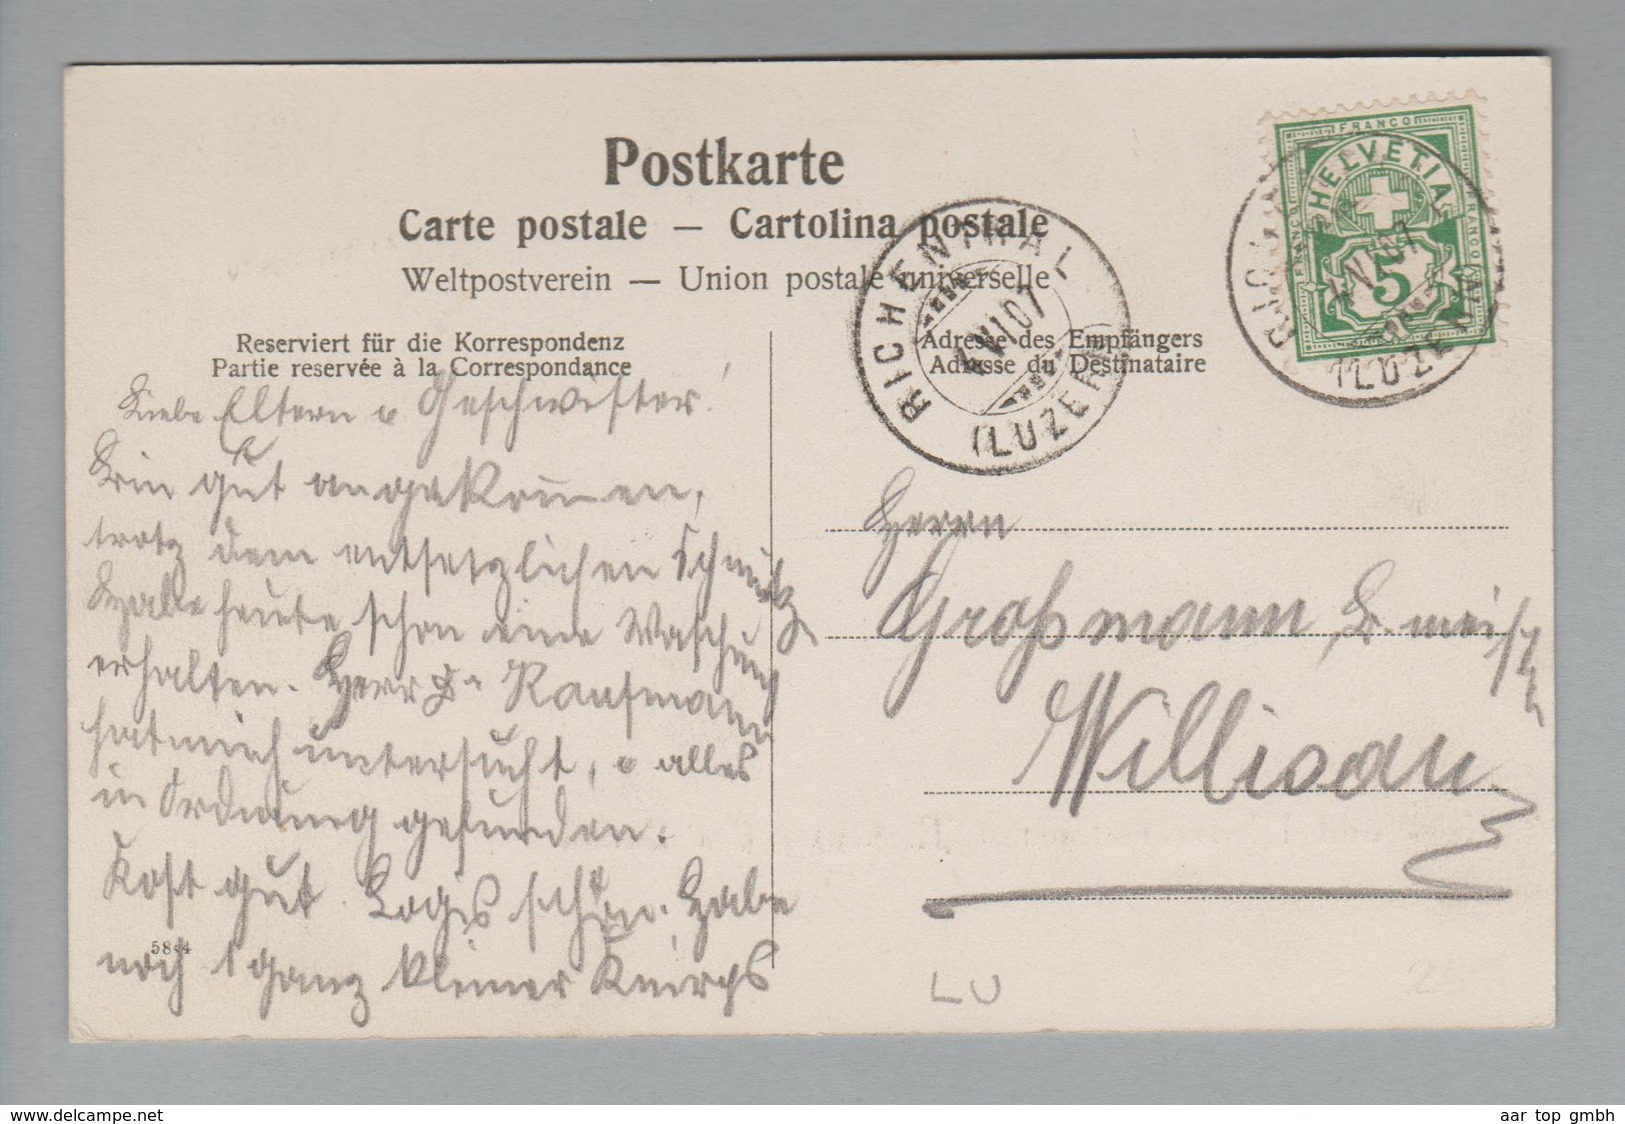 Postkarte
Carte postale — Cartolina postale
Weltpostverein — Union postale universelle
Reserviert für die Korrespondenz
Partie reservée à la Correspondance
Adresse des Empfängers
Adresse du Destinataire
FRANCO
HELVETIA
FRANCO
FRANCO
5
RICHENTHAL
1 VI 07
(LUZERN)
VI 07
(LUZERN)
Liebe Eltern u Geschwister!
Bin gut angekommen,
trotz dem entsetzlichen Schmutz
Habe heute schon eine Waschung
erhalten. Herr Dr Kaufmann
hat mich untersucht, u alles
in Ordnung gefunden.
Kost gut. Logis schön. Habe
noch 1 ganz kleiner Knirps
5844
Herrn
Großmann, B.meister
Willisau
LU
www.delcampe.net
aar top gmbh